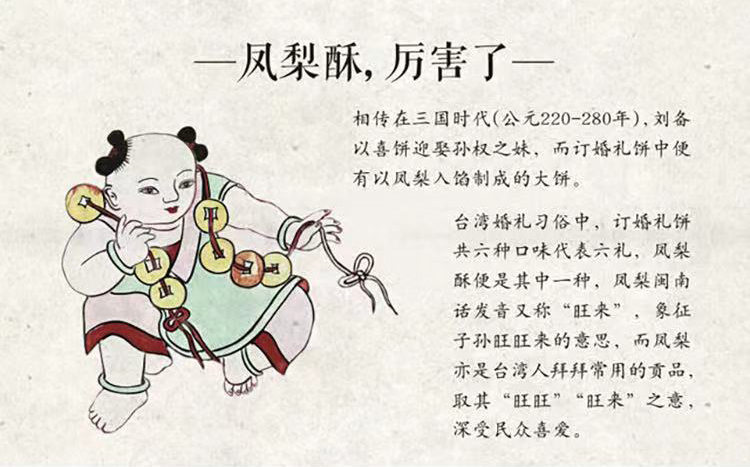 —凤梨酥，厉害了—
相传在三国时代(公元220-280年)，刘备
以喜饼迎娶孙权之妹，而订婚礼饼中便
有以凤梨入馅制成的大饼。
台湾婚礼习俗中，订婚礼饼
共六种口味代表六礼，凤梨
酥便是其中一种，凤梨闽南
话发音又称“旺来”，象征
子孙旺旺来的意思，而凤梨
亦是台湾人拜拜常用的贡品，
取其“旺旺”“旺来”之意，
深受民众喜爱。